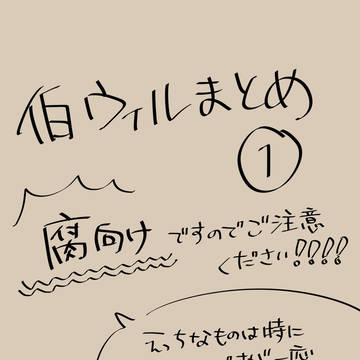 伯ウィルまとめ
①
腐向けですのでご注意
ください!!!!
えっちなものは時に